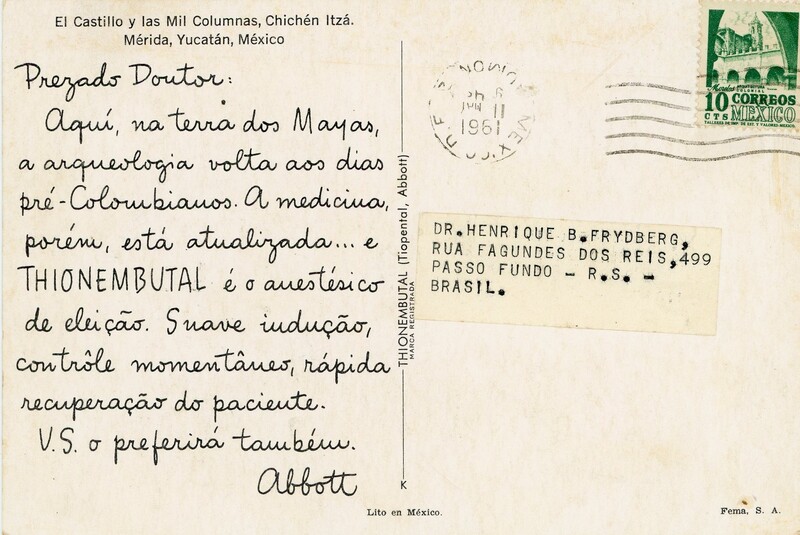 El Castillo y las Mil Columnas, Chichén Itzá.
Mérida, Yucatán, México
Prezado Doutor:
Aquí, na terra dos Mayas,
a arqueologia volta aos dias
pré-Colombianos. A medicina,
porém, está atualizada... e
THIONEMBUTAL é o anestésico
de eleição. Suave indução,
contrôle momentâneo, rápida
recuperação do paciente.
V.S. o preferirá também.
Abbott
THIONEMBUTAL (Tiopental, Abbott)
MARCA REGISTRADA
K
Lito en México.
Fema, S. A.
MEXICO D.F.
11
1961
Morelos
COLONIAL
10 CORREOS
CTS MÉXICO
DR.HENRIQUE B.FRYDBERG,
RUA FAGUNDES DOS REIS,499
PASSO FUNDO - R.S. -
BRASIL.